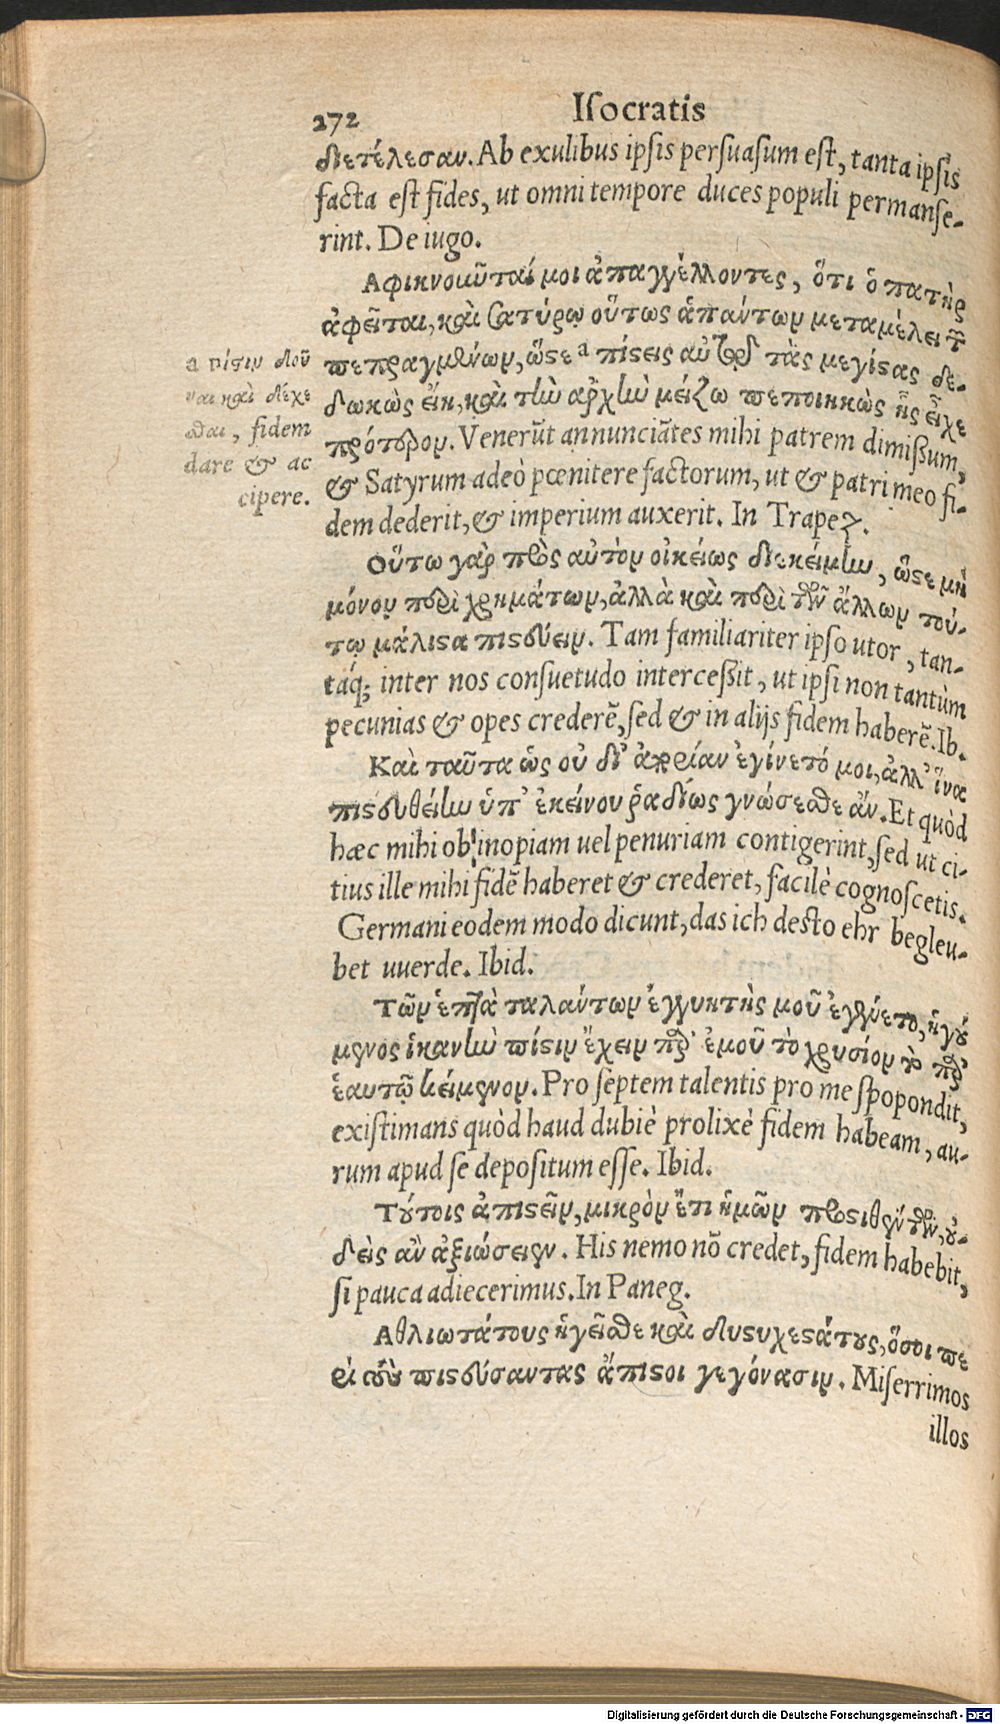 272 Isocratis
διετέλεσαν. Ab exulibus ipsis persuasum est, tanta ipsis
facta est fides, ut omni tempore duces populi permanse-
rint. De iugo.
Αφικνοῦνταί μοι ἀπαγγέλλοντες, ὅτι ὁ πατὴρ
ἀφεῖται, καὶ Σατύρῳ οὕτως ἁπάντων μεταμέλει τῶν
πεπραγμένων, ὥστε a πίστεις αὐτῷ τὰς μεγίστας δε-
δωκὼς εἴη, καὶ τὴν ἀρχὴν μείζω πεποιηκὼς ἧς εἶχε
πρότερον. Venerūt annunciātes mihi patrem dimissum,
& Satyrum adeò pœnitere factorum, ut & patri meo fi-
dem dederit, & imperium auxerit. In Trapez.
a πίστιν δοῦ
ναι καὶ δέχε
σθαι, fidem
dare & ac
cipere.
Οὕτω γὰρ πρὸς αὐτὸν οἰκείως διεκείμην, ὥστε μὴ
μόνον περὶ χρημάτων, ἀλλὰ καὶ περὶ τῶν ἄλλων τού-
τῳ μάλιστα πιστεύειν. Tam familiariter ipso utor, tan-
táq; inter nos consuetudo intercessit, ut ipsi non tantùm
pecunias & opes crederē, sed & in alijs fidem haberē. Ib.
Καὶ ταῦτα ὡς οὐ δι' ἀκρίαν ἐγίνετό μοι, ἀλλ' ἵνα
πιστευθείην ὑπ' ἐκείνου ῥαδίως γνώσεσθε ἄν. Et quòd
hæc mihi ob inopiam uel penuriam contigerint, sed ut ci-
tius ille mihi fidē haberet & crederet, facilè cognoscetis.
Germani eodem modo dicunt, das ich desto ehr begleu-
bet uuerde. Ibid.
Τῶν ἑπτὰ ταλάντων ἐγγυητὴς μοῦ ἐγένετο, ἡγού
μενος ἱκανὴν πίστιν ἔχειν παρ' ἐμοῦ τὸ χρυσίον τὸ παρ'
ἑαυτῷ κείμενον. Pro septem talentis pro me spopondit,
existimans quòd haud dubiè prolixè fidem habeam, au-
rum apud se depositum esse. Ibid.
Τούτοις ἀπιστεῖν, μικρὸν ἔτι ἡμῶν προστιθέντων, οὐ-
δεὶς ἂν ἀξιώσειεν. His nemo nō credet, fidem habebit,
si pauca adiecerimus. In Paneg.
Αθλιωτάτους ἡγεῖσθε καὶ δυστυχεστάτους, ὅσοι πε
ρὶ τοὺς πιστεύσαντας ἄπιστοι γεγόνασιν. Miserrimos
illos
Digitalisierung gefördert durch die Deutsche Forschungsgemeinschaft - DFG